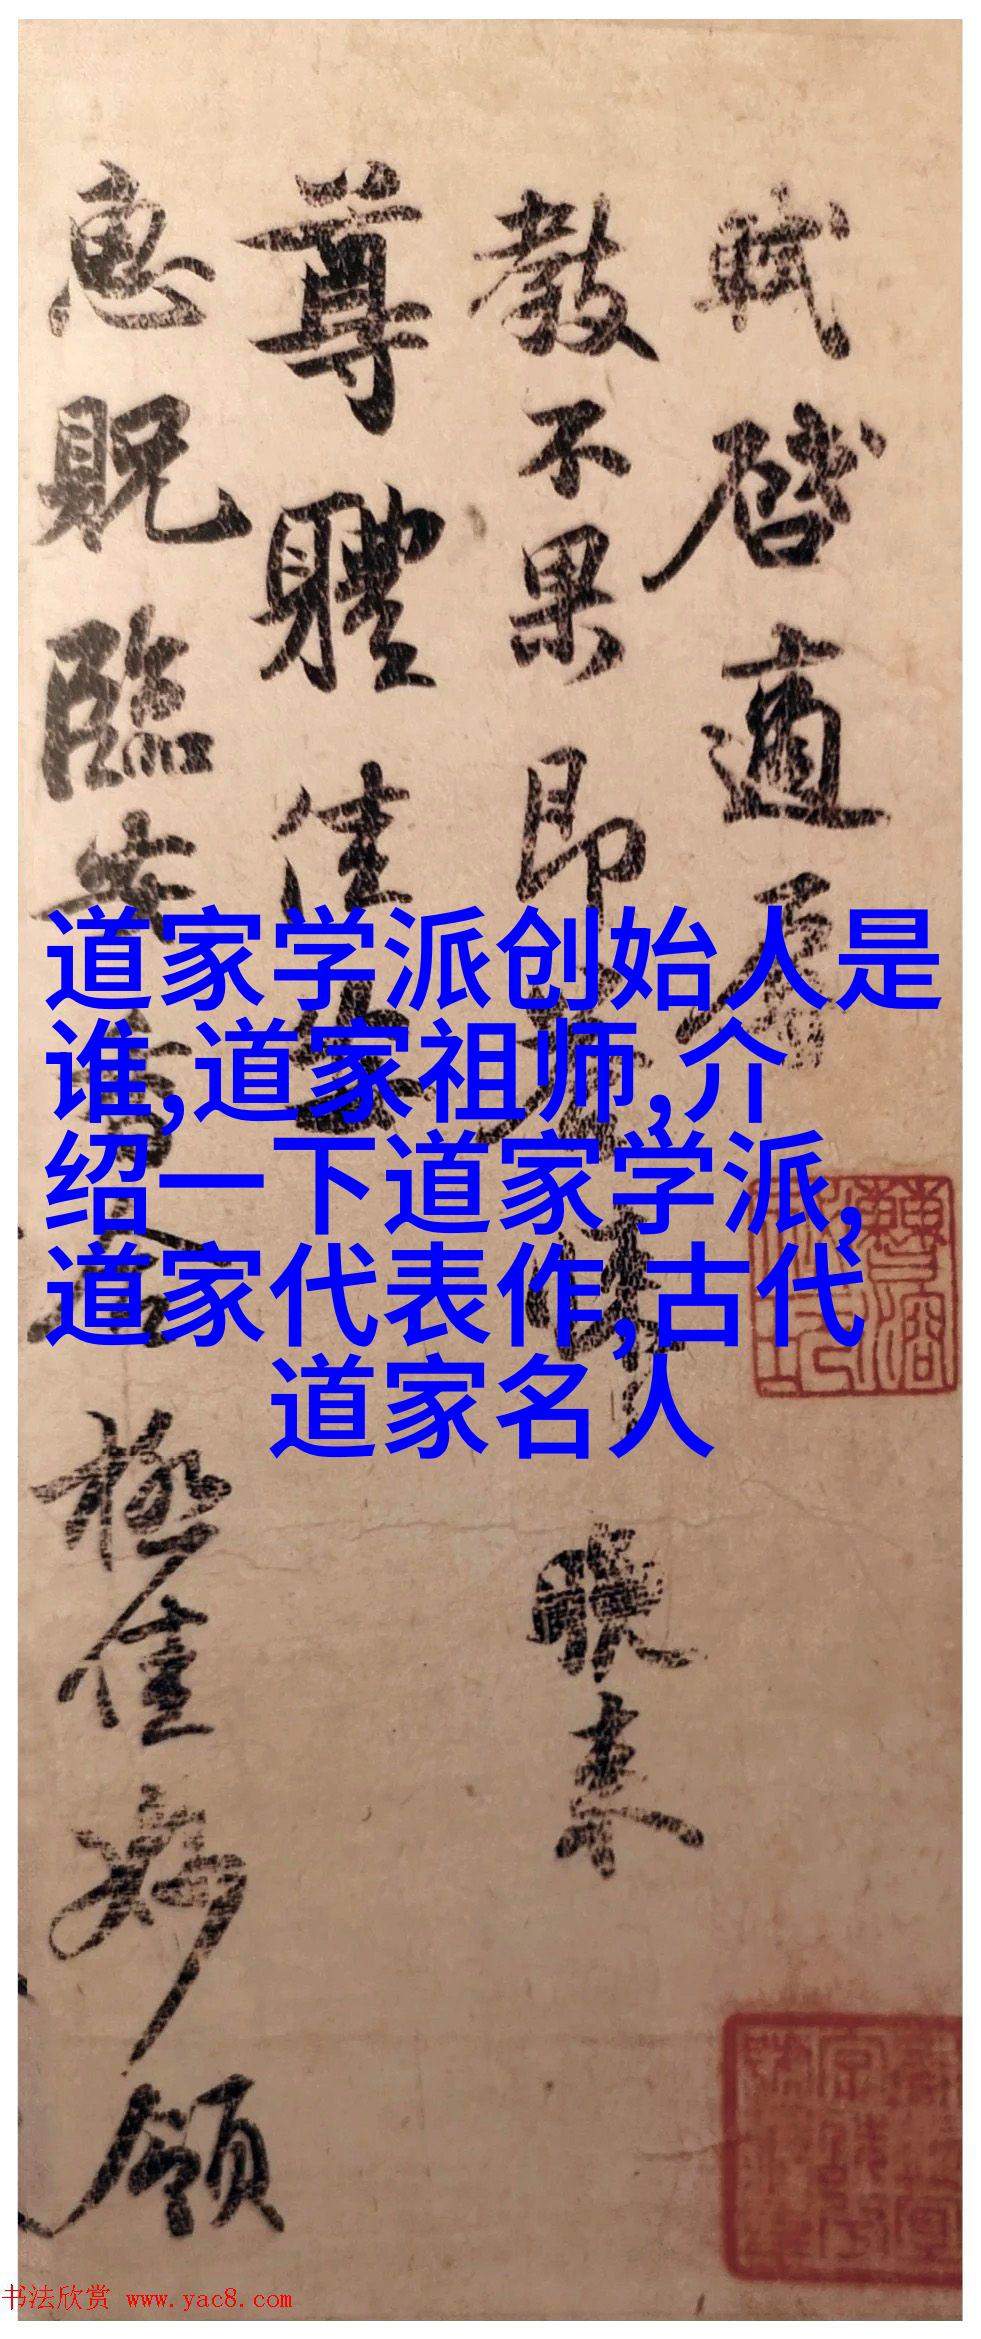 軾啓適辱
教不果即
晚来
尊體佳
惠貺臨安
極佳妙領
道家学派创始人是
谁,道家祖师,介
绍一下道家学派,
道家代表作,古代
道家名人
书法欣赏 www.yac8.com